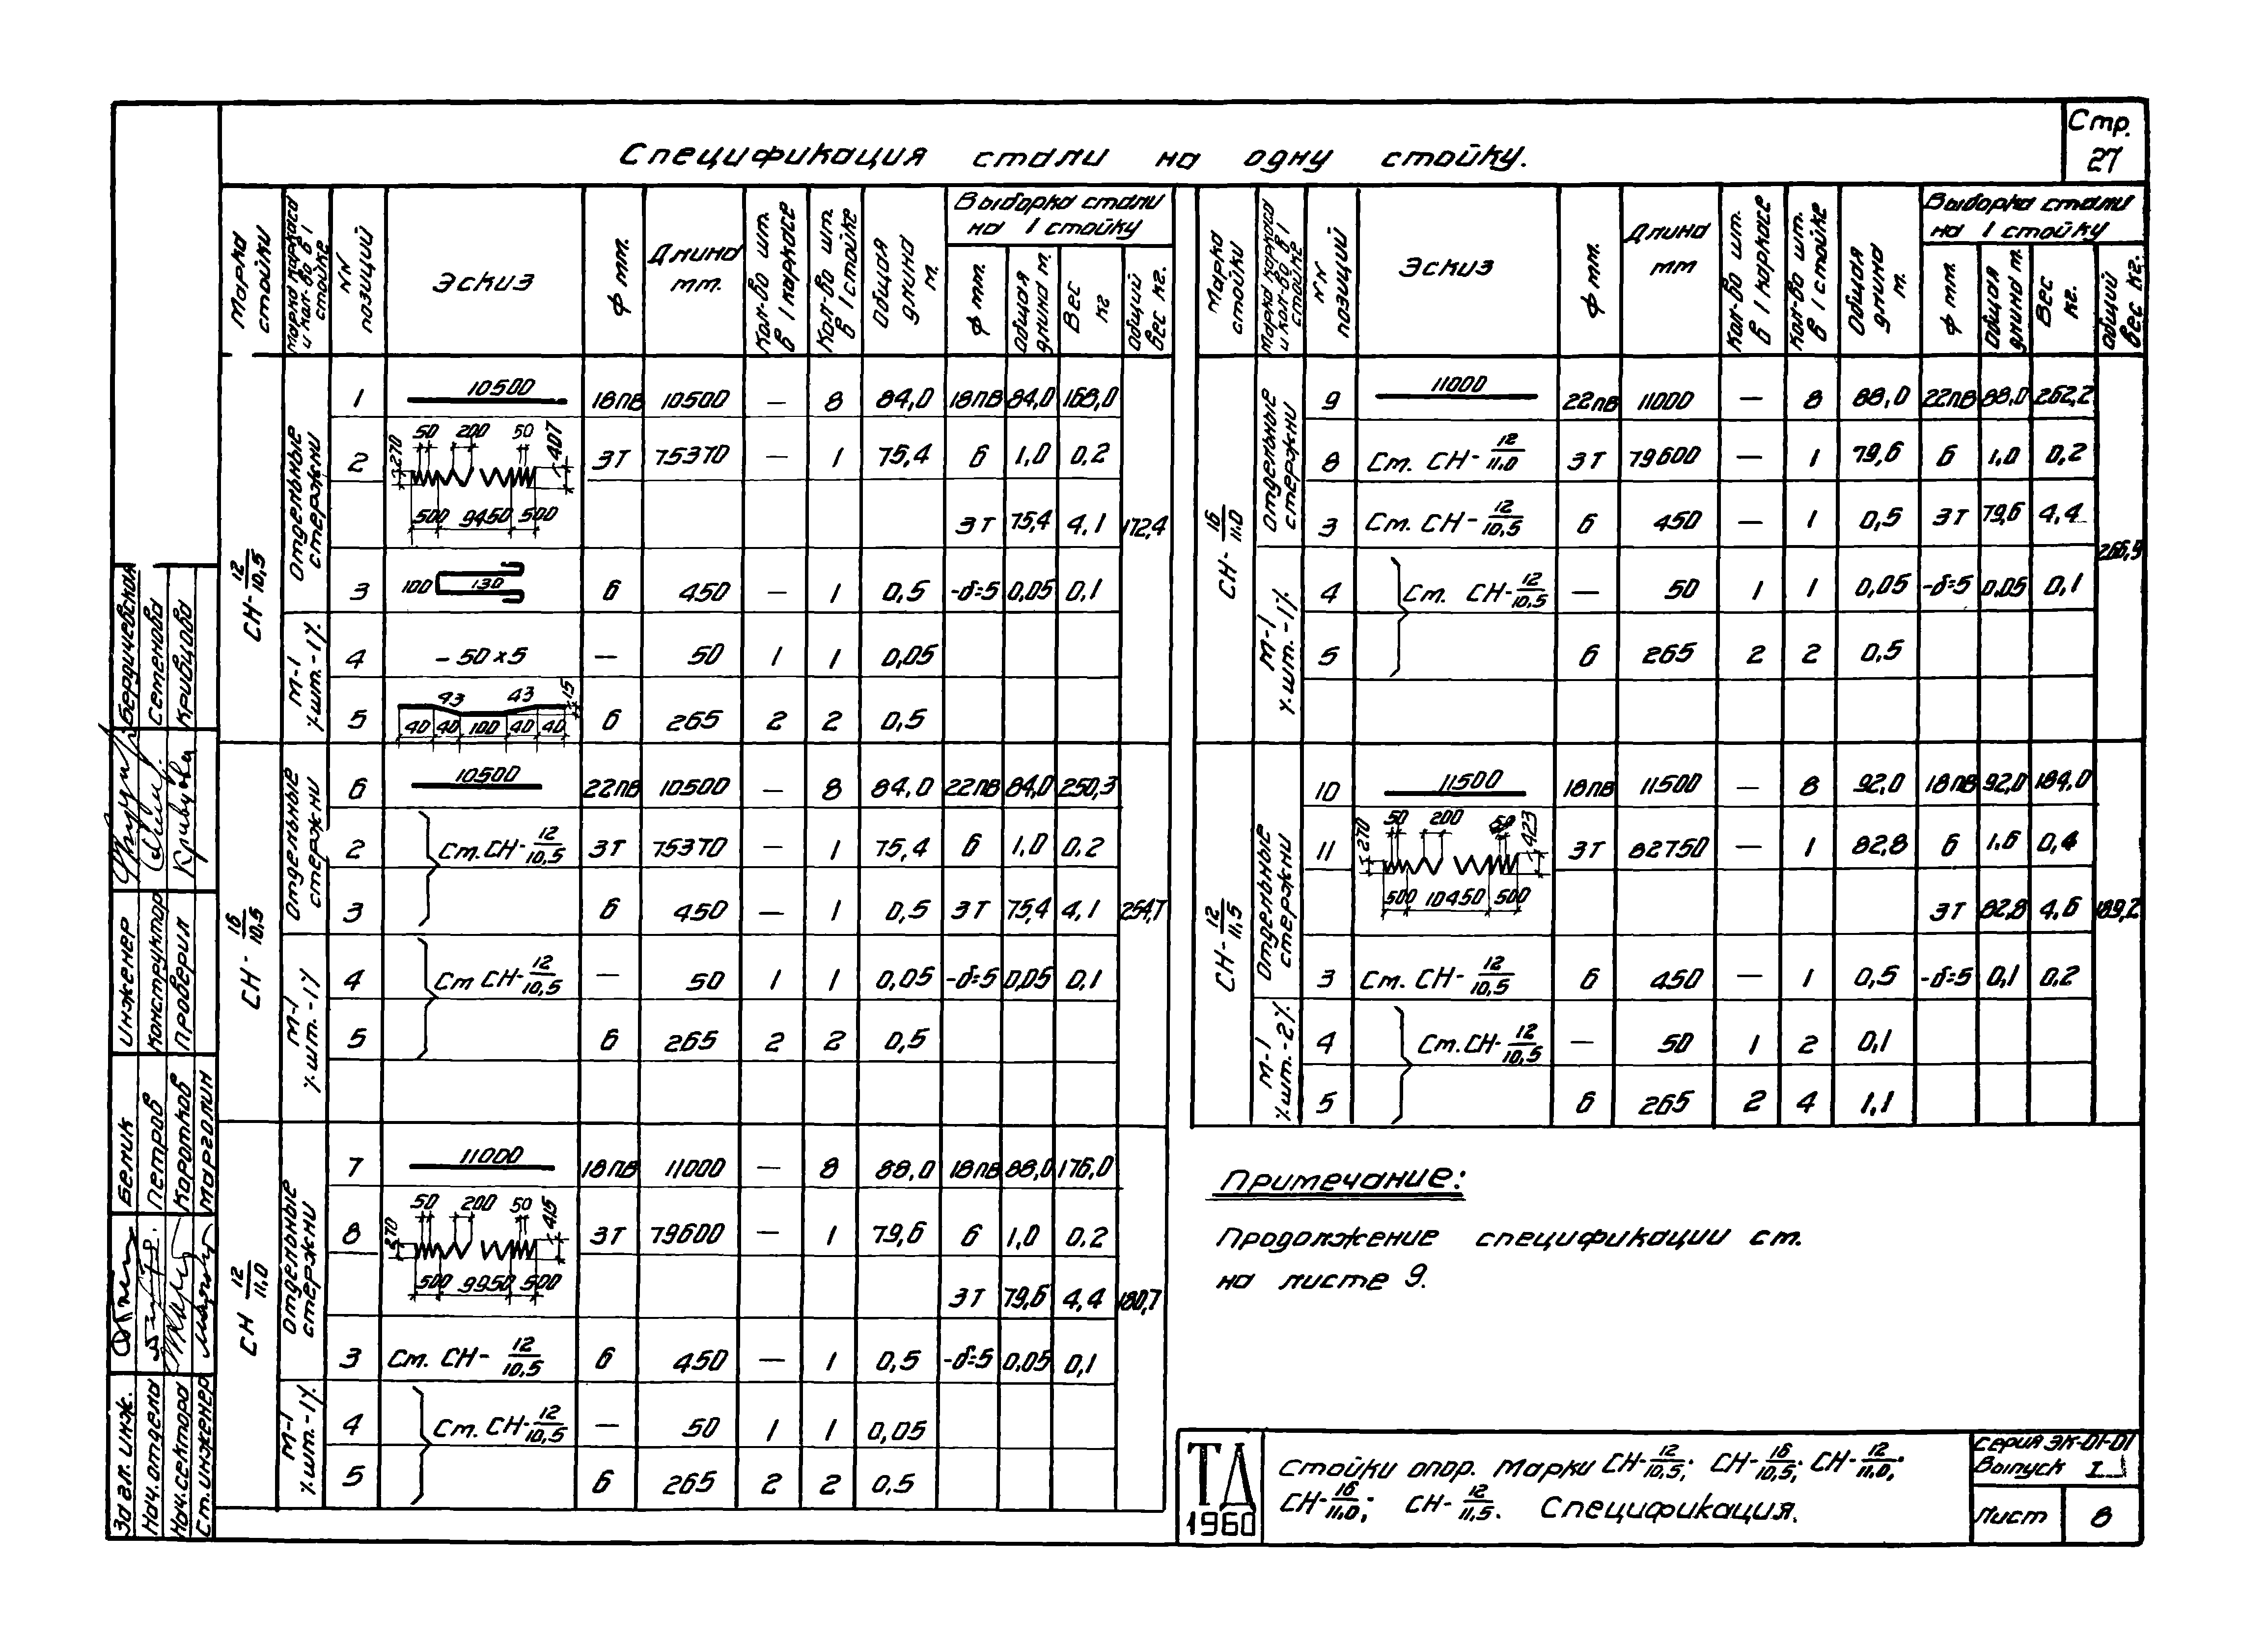 Стр.
27
Спецификация стали на одну стойку.
Марка стойки
Марка каркаса и кол-во в 1 стойке
NN позиций
Эскиз
ф мм.
Длина мм.
Кол-во шт. в 1 каркасе
Кол-во шт. в 1 стойке
Общая длина м.
Выборка стали на 1 стойку
ф мм.
Общая длина м.
Вес кг
Общий вес кг.
СН-12/10,5
Отдельные стержни
1 10500 18пв 10500 — 8 84,0 18пв 84,0 168,0
2 270 50 200 50 407 500 9450 500 3Т 75370 — 1 75,4 6 1,0 0,2
3Т 75,4 4,1 172,4
3 100 130 6 450 — 1 0,5 -δ=5 0,05 0,1
М-1 шт.-1
4 - 50×5 — 50 1 1 0,05
5 43 43 15 40 40 100 40 40 6 265 2 2 0,5
СН-16/10,5
Отдельные стержни
6 10500 22пв 10500 — 8 84,0 22пв 84,0 250,3
2 Ст. СН-12/10,5 3Т 75370 — 1 75,4 6 1,0 0,2
3 6 450 — 1 0,5 3Т 75,4 4,1 254,7
М-1 шт.-1
4 Ст СН-12/10,5 — 50 1 1 0,05 -δ=5 0,05 0,1
5 6 265 2 2 0,5
СН 12/11,0
Отдельные стержни
7 11000 18пв 11000 — 8 88,0 18пв 88,0 176,0
8 270 50 200 50 415 500 9950 500 3Т 79600 — 1 79,6 6 1,0 0,2
3Т 79,6 4,4 180,7
3 Ст. СН-12/10,5 6 450 — 1 0,5 -δ=5 0,05 0,1
М-1 шт.-1
4 Ст. СН-12/10,5 — 50 1 1 0,05
5 6 265 2 2 0,5
Марка стойки
Марка каркаса и кол-во в 1 стойке
NN позиций
Эскиз
ф мм.
Длина мм
Кол-во шт. в 1 каркасе
Кол-во шт. в 1 стойке
Общая длина м.
Выборка стали на 1 стойку
ф мм.
Общая длина м.
Вес кг.
Общий вес кг.
СН-16/11,0
Отдельные стержни
9 11000 22пв 11000 — 8 88,0 22пв 88,0 262,2
8 Ст. СН-12/11,0 3Т 79600 — 1 79,6 6 1,0 0,2
3 Ст. СН-12/10,5 6 450 — 1 0,5 3Т 79,6 4,4
266,9
М-1 шт.-1
4 Ст. СН-12/10,5 — 50 1 1 0,05 -δ=5 0,05 0,1
5 6 265 2 2 0,5
СН-12/11,5
Отдельные стержни
10 11500 18пв 11500 — 8 92,0 18пв 92,0 184,0
11 270 50 200 50 423 500 10450 500 3Т 82750 — 1 82,8 6 1,6 0,4
3Т 82,8 4,6 189,2
3 Ст. СН-12/10,5 6 450 — 1 0,5 -δ=5 0,1 0,2
М-1 шт.-2
4 Ст. СН-12/10,5 — 50 1 2 0,1
5 6 265 2 4 1,1
Примечание:
Продолжение спецификации см.
на листе 9.
ТД
1960
Стойки опор. Марки СН-12/10,5; СН-16/10,5; СН-12/11,0;
СН-16/11,0; СН-12/11,5. Спецификация.
Серия ЭК-01-01
Выпуск I
Лист 8
Инженер Бердичевская
Конструктор Семенова
Проверил Кривцова
Зап. гл. инж. Бемик
Нач. отдела Петров
Нач. сектора Коротков
Ст. инженер Марголин